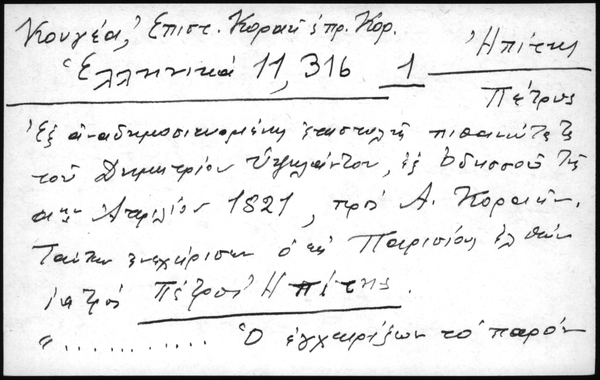 Κουγέα, Ἐπιστ. Κοραῆ ἐπρ. Κορ.
Ἑλληνικά 11, 316 1
Ἠπίτης
Πέτρος
Ἐξ ἀναδημοσιευομένης ἐπιστολῆς πιθανώτατα
τοῦ Δημητρίου Ὑψηλάντου, ἐξ Ὀδησσοῦ τῆς
Ἀπριλίου 1821, πρός Α. Κοραῆν.
Ταύτην ἐνεχείρισεν ὁ εἰς Παρισίους ἐλθών
ἰατρός Πέτρος Ἠπίτης.
"........... Ὁ ἐγχειρίζων τό παρόν